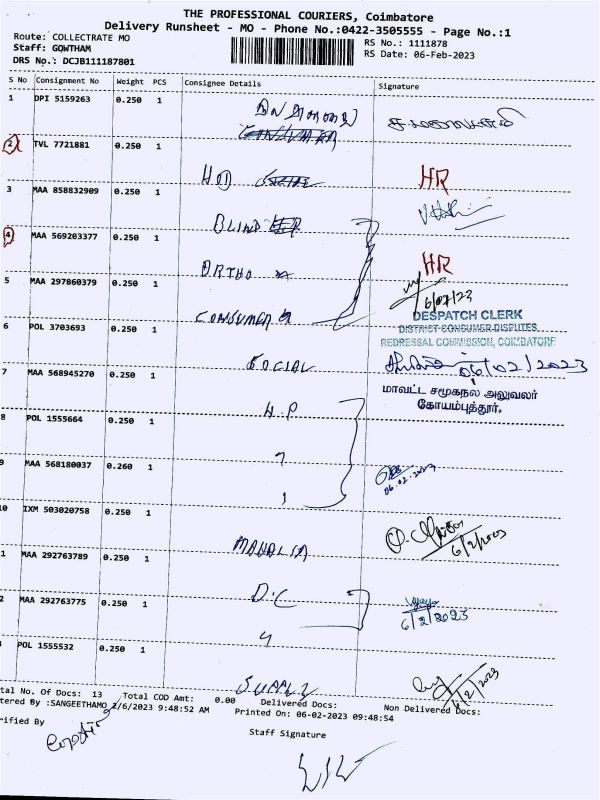 THE PROFESSIONAL COURIERS, Coimbatore
Delivery Runsheet - MO - Phone No.:0422-3505555 - Page No.:1
Route: COLLECTRATE MO
Staff: GOWTHAM
DRS No.: DCJB111187801
RS No.: 1111878
RS Date: 06-Feb-2023
S No Consignment No Weight PCS Consignee Details Signature
1 DPI 5159263 0.250 1
2 TVL 7721881 0.250 1
HR
3 MAA 858832909 0.250 1 BLIND
4 MAA 569203377 0.250 1 ORTHO HR
5 MAA 297860379 0.250 1 CONSUMER
6/02/23
DESPATCH CLERK
DISTRICT CONSUMER DISPUTES
REDRESSAL COMMISSION, COIMBATORE
6 POL 3703693 0.250 1 SOCIAL
06/02/2023
மாவட்ட சமூகநல அலுவலர்
கோயம்புத்தூர்.
7 MAA 568945270 0.250 1
8 POL 1555664 0.250 1
9 MAA 568180037 0.260 1
06.02.2023
10 IXM 503020758 0.250 1 MAHALIR
6/2/2023
1 MAA 292763789 0.250 1 D.C
2 MAA 292763775 0.250 1
6/2/2023
POL 1555532 0.250 1 SUPPLY
6/2/2023
tal No. Of Docs: 13 Total COD Amt: 0.00 Delivered Docs: Non Delivered Docs:
tered By :SANGEETHAMO 2/6/2023 9:48:52 AM Printed On: 06-02-2023 09:48:54
rified By
Staff Signature